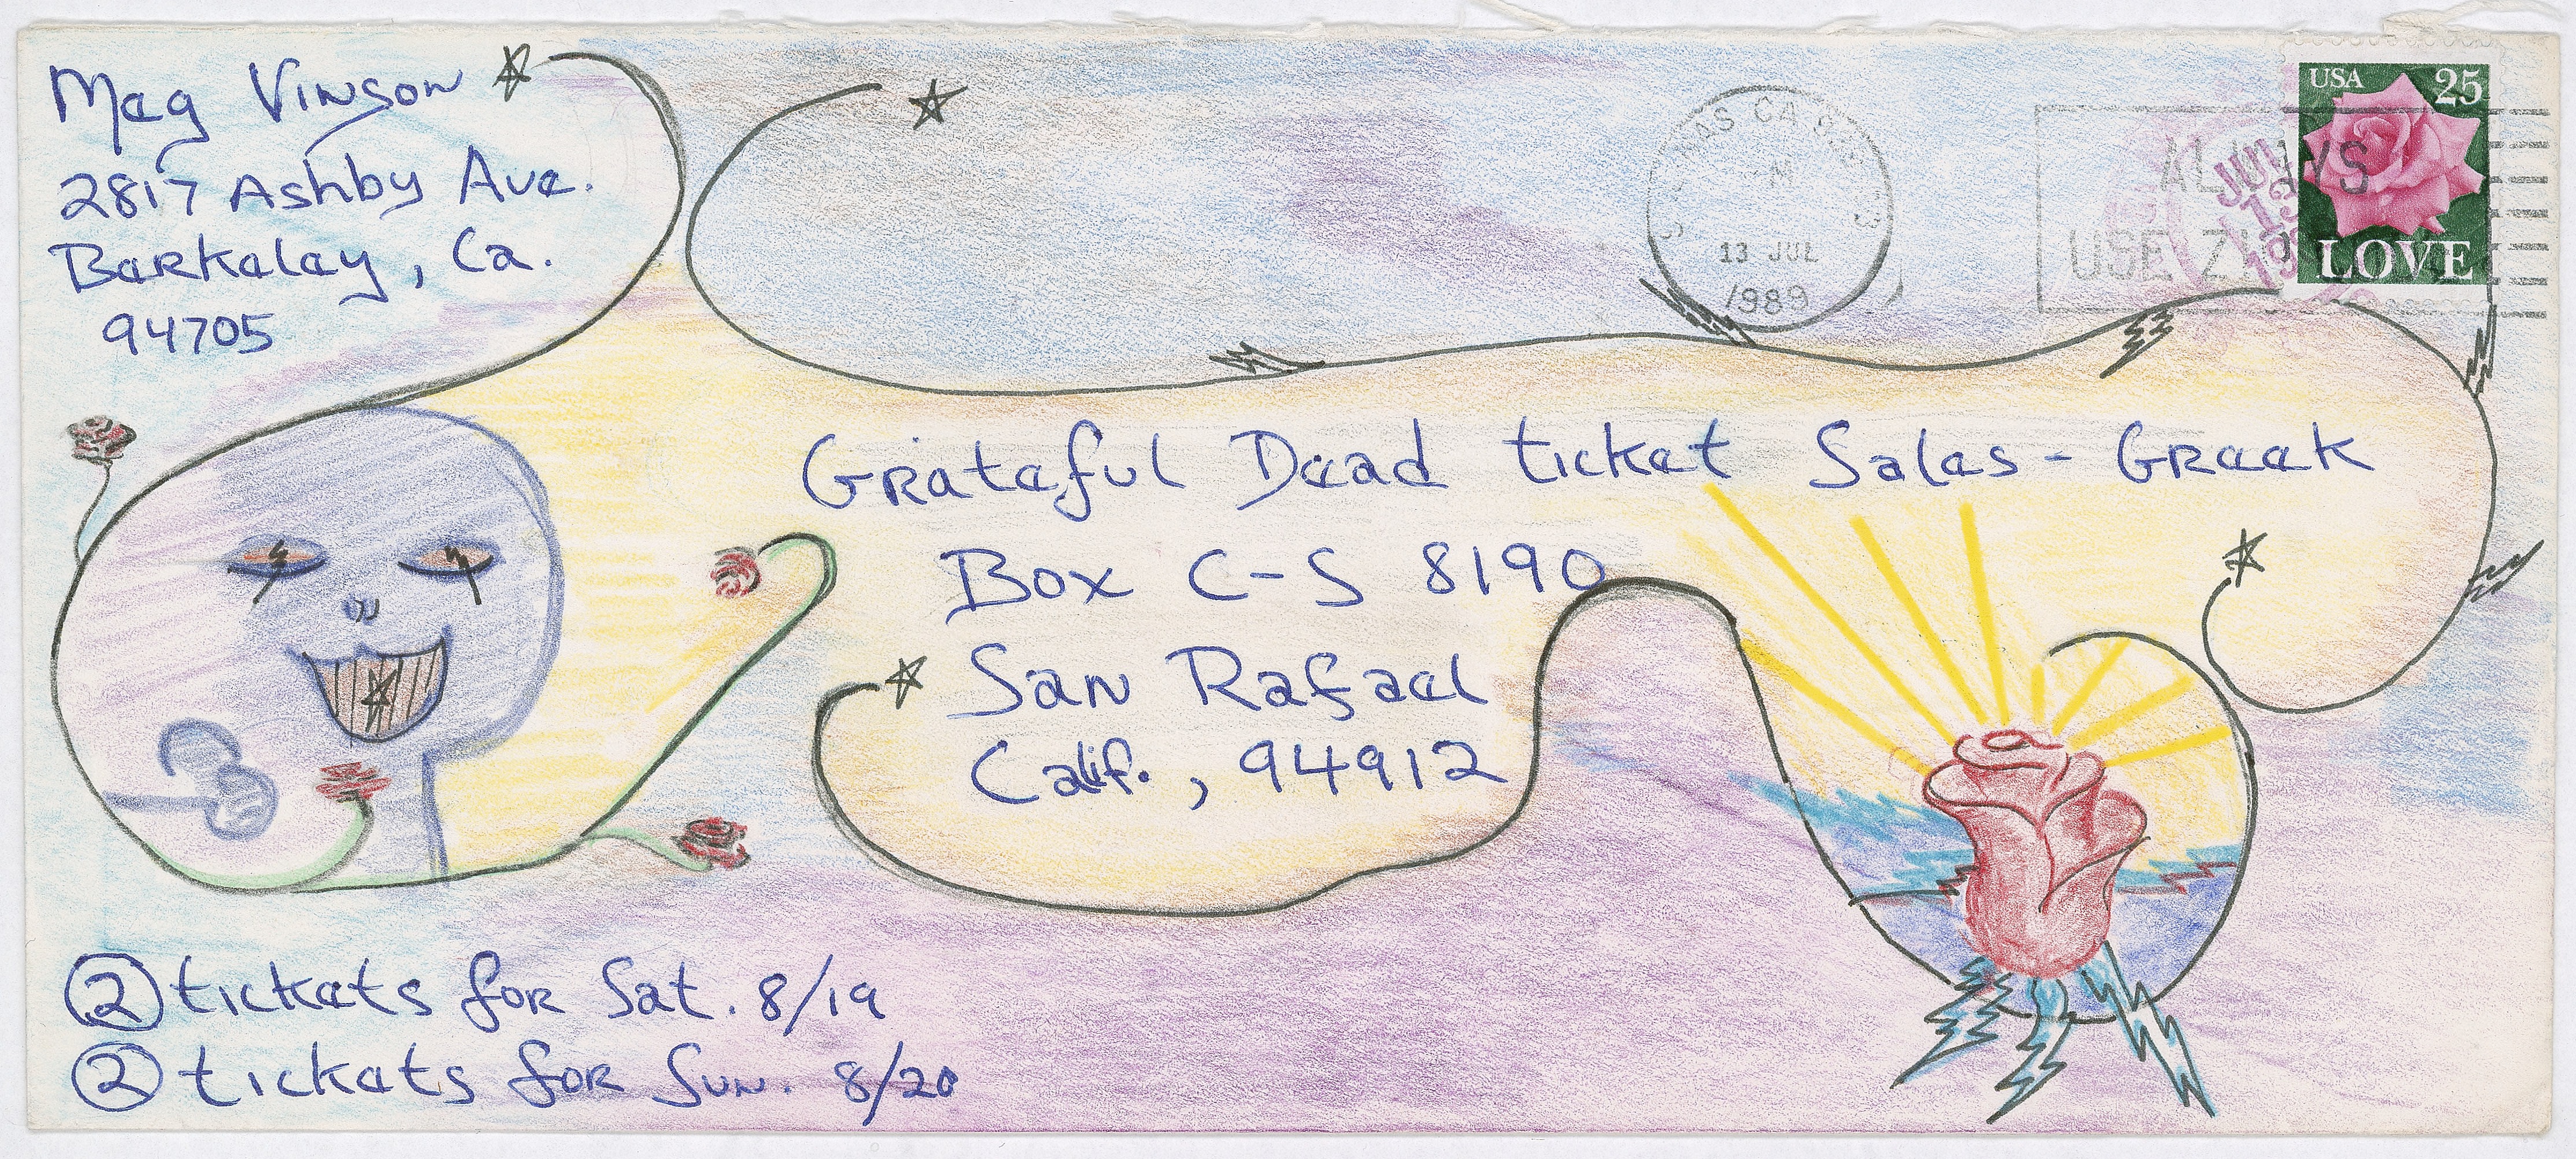 Meg Vinson
2817 Ashby Ave.
Berkeley, Ca.
94705
13 JUL
1989
ALWAYS
USE ZIP
JUL
13
USA 25
LOVE
Grateful Dead ticket Sales - Greek
Box C-S 8190
San Rafael
Calif., 94912
2 tickets for Sat. 8/19
2 tickets for Sun. 8/20